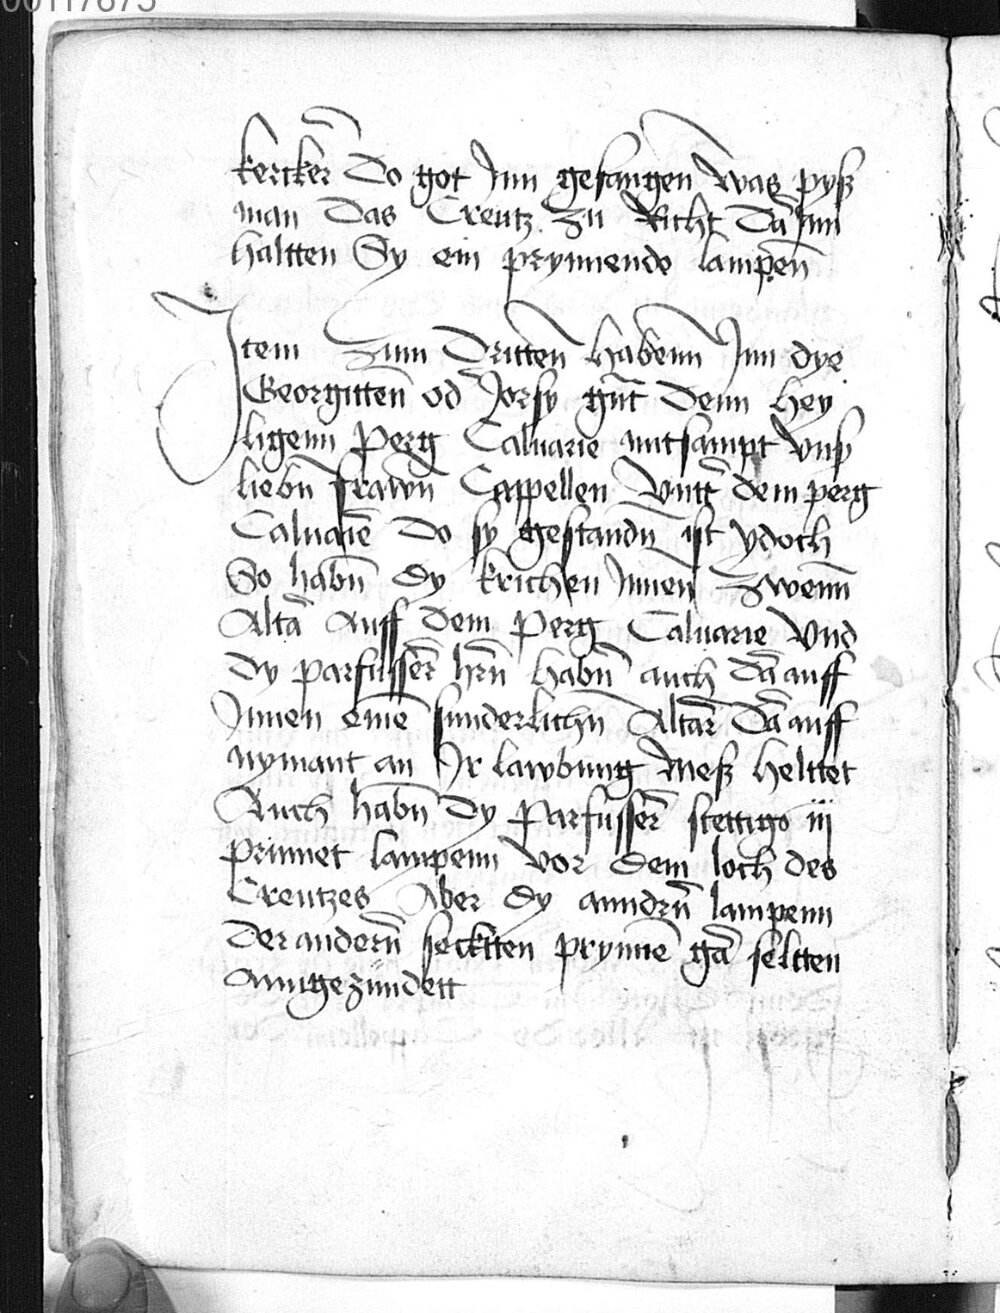 00117675
kercker Do got Jnn gefanngen was pyß
man Das Creutz zu Richt Dar Jnn
haltten Sy ein prynnende lampen
Jtem zum Dritten habenn Jnn dye
Georgitten od Jorsy gut Denn hey
ligenn Perg Caluarie mitsampt vnß
liebn frawn Cappellen vntt dem perg
Caluarie Do sy gestandn ist ydoch
So habn dy krichen Jnnen zwenn
Alta Auff dem Perg Caluarie Vnd
dy parfusser hrn habn auch Da auff
Jnnen eine sunderlichn Altar Da auff
nymant an Jr lawbung Meß heltet
Auch habn Dy Parfusser stettigo iij
prinnet lampenn vor dem loch des
Creutzes Aber dy anndrn lampenn
Der andern secktten prynne ga seltten
anngezundett